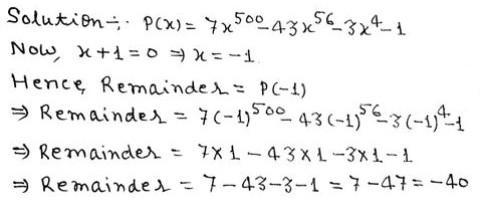 Solution÷. P(x) = 7x⁵⁰⁰-43x⁵⁶-3x⁴-1
Now, x+1=0 ⇒ x=-1
Hence, Remainder = P(-1)
⇒ Remainder = 7(-1)⁵⁰⁰-43(-1)⁵⁶-3(-1)⁴-1
⇒ Remainder = 7×1-43×1-3×1-1
⇒ Remainder = 7-43-3-1 = 7-47=-40